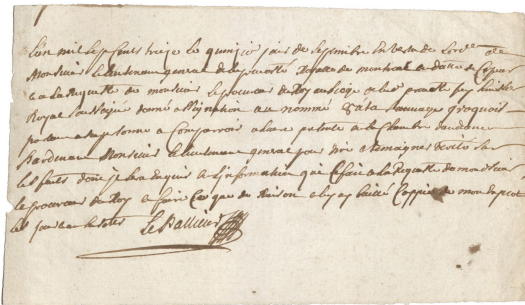 L'an mil sept cents treize le quinzie jour de Septembre En vertu de Lord.ce de
Monsieur le lieutenant general de la prevosté Royalle de montreal en datte de Ce jour
a la Requette de monsieur le procureur du Roy au siege de la prevosté Jay huissier
Royal soussigné donné assignation au nommé sauvage yroquois
parlant a sa personne a Comparroir a en la Chambre
pardevant Monsieur le lieutenant general pour dire temoignage verité sur
les faits dont il sera enquis a L'information que Ce fait a la Requette de mondit sieur
le procureur du Roy a faire Ce que de Raison et luy ay laissé Coppie de mon exploit
les jour et an
Le Pallieur